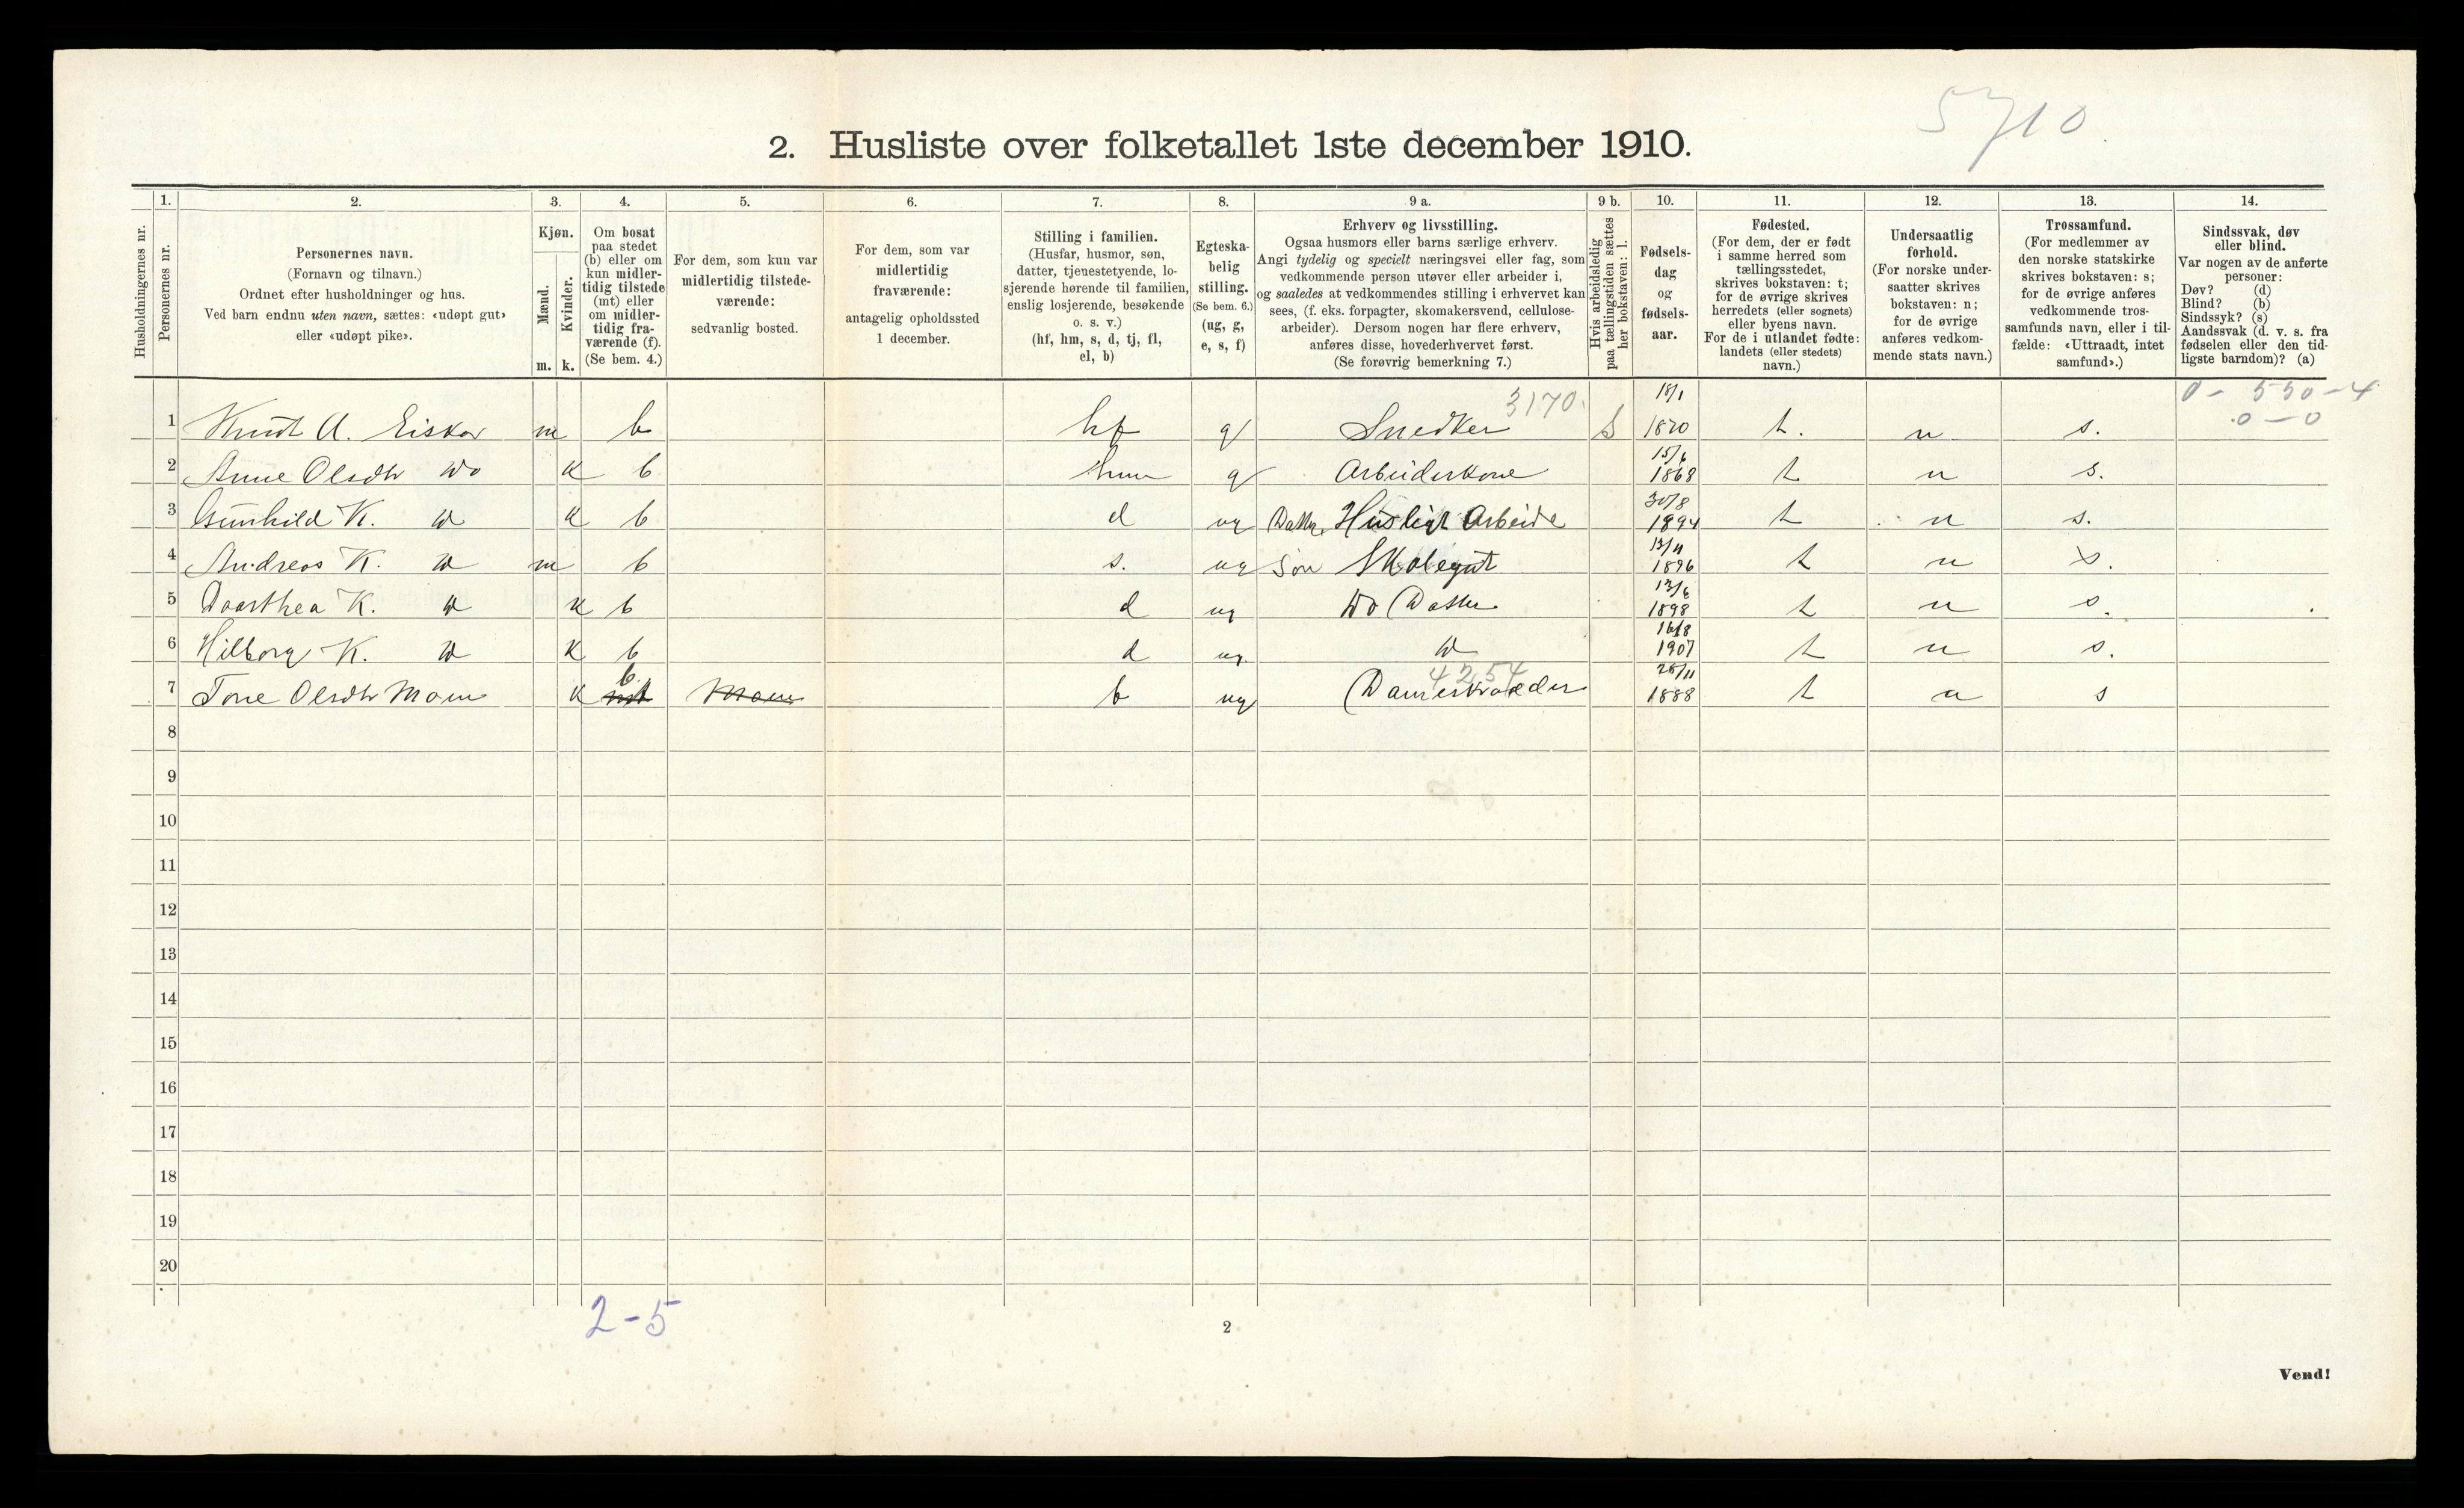 5710
2. Husliste over folketallet 1ste december 1910.
Husholdningernes nr.
1.
Personernes nr.
2.
Personernes navn.
(Fornavn og tilnavn.)
Ordnet efter husholdninger og hus.
Ved barn endnu uten navn, sættes: «udøpt gut»
eller «udøpt pike».
3.
Kjøn.
Mænd.
Kvinder.
m. k.
4.
Om bosat
paa stedet
(b) eller om
kun midler-
tidig tilstede
(mt) eller
om midler-
tidig fra-
værende (f).
(Se bem. 4.)
5.
For dem, som kun var
midlertidig tilstede-
værende:
sedvanlig bosted.
6.
For dem, som var
midlertidig
fraværende:
antagelig opholdssted
1 december.
7.
Stilling i familien.
(Husfar, husmor, søn,
datter, tjenestetyende, lo-
sjerende hørende til familien,
enslig losjerende, besøkende
o. s. v.)
(hf, hm, s, d, tj, fl,
el, b)
8.
Egteska-
belig
stilling.
(Se bem. 6.)
(ug, g,
e, s, f)
9 a.
Erhverv og livsstilling.
Ogsaa husmors eller barns særlige erhverv.
Angi tydelig og specielt næringsvei eller fag, som
vedkommende person utøver eller arbeider i,
og saaledes at vedkommendes stilling i erhvervet kan
sees, (f. eks. forpagter, skomakersvend, cellulose-
arbeider). Dersom nogen har flere erhverv,
anføres disse, hovederhvervet først.
(Se forøvrig bemerkning 7.)
9 b.
Hvis arbeidsledig
paa tællingstiden sættes
her bokstaven: l.
10.
Fødsels-
dag
og
fødsels-
aar.
11.
Fødested.
(For dem, der er født
i samme herred som
tællingsstedet,
skrives bokstaven: t;
for de øvrige skrives
herredets (eller sognets)
eller byens navn.
For de i utlandet fødte:
landets (eller stedets)
navn.)
12.
Undersaatlig
forhold.
(For norske under-
saatter skrives
bokstaven: n;
for de øvrige
anføres vedkom-
mende stats navn.)
13.
Trossamfund.
(For medlemmer av
den norske statskirke
skrives bokstaven: s;
for de øvrige anføres
vedkommende tros-
samfunds navn, eller i til-
fælde: «Uttraadt, intet
samfund».)
14.
Sindssvak, døv
eller blind.
Var nogen av de anførte
personer:
Døv? (d)
Blind? (b)
Sindssyk? (s)
Aandssvak (d. v. s. fra
fødselen eller den tid-
ligste barndom)? (a)
3170. 18/1 0 - 530 - 4
0 - 0
1 Knut A. m b hf g Snedker 1870 t. n s.
2 Anne Olsdtr Do k b hm g Arbeiderkone 15/6 1868 t n s.
3 Gunhild K. Do k b d ug Datter Husligt Arbeide 30/8 1894 t n s.
4 Andreas K. Do m b s. ug Søn Skolegut 13/11 1896 t n s.
5 Doorthea K. Do k b d ug Do Datter 13/6 1898 t n s.
6 Hilborg K. Do k b d ug. Do 16/8 1907 t n s.
7 Tone Olsdtr Moen k b mt Moen b ug 4254 Dameskrædder 28/11 1888 t n s
8
9
10
11
12
13
14
15
16
17
18
19
20
2-5
2
Vend!